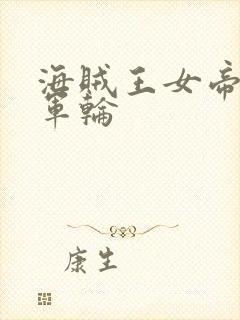 海賊王女帝
軍輪
康生